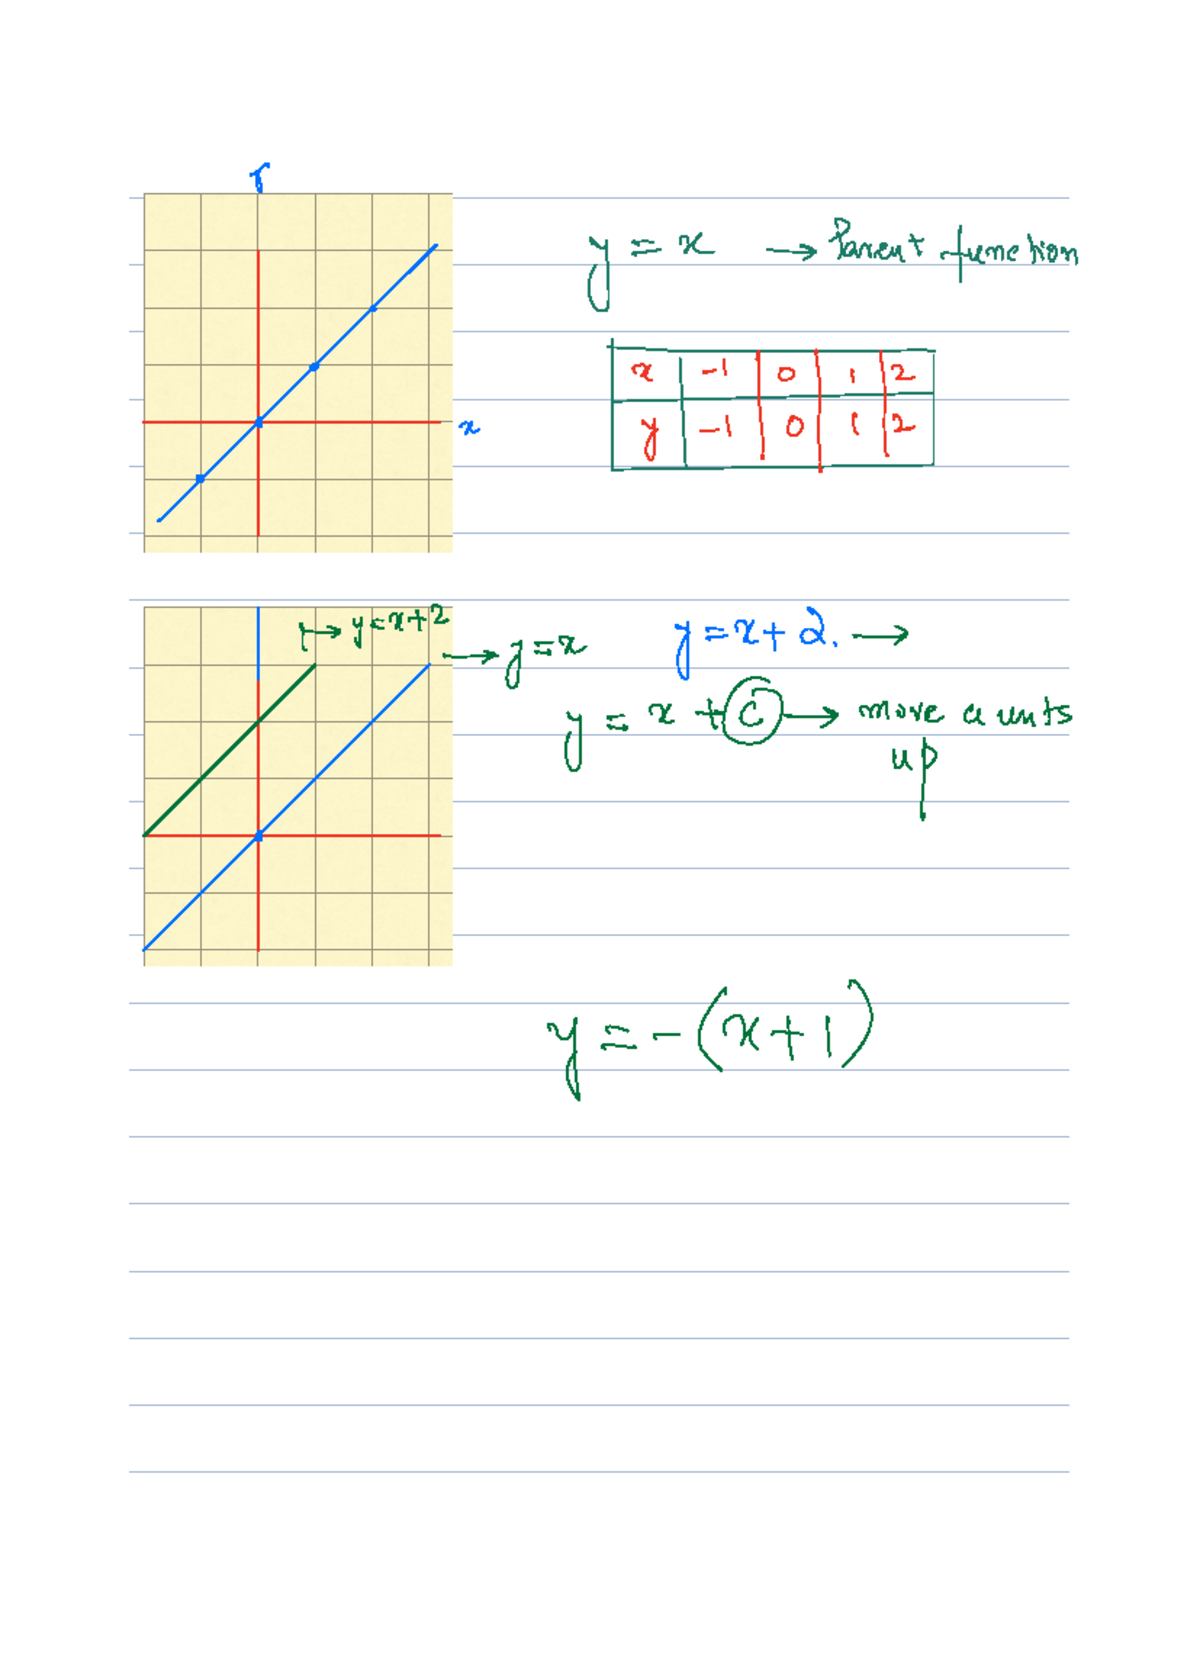 y
y = x → Parent function
x -1 0 1 2
y -1 0 1 2
x
→ y=x+2
→ y=x
y=x+2. →
y = x + c → move a units
up
y = -(x+1)